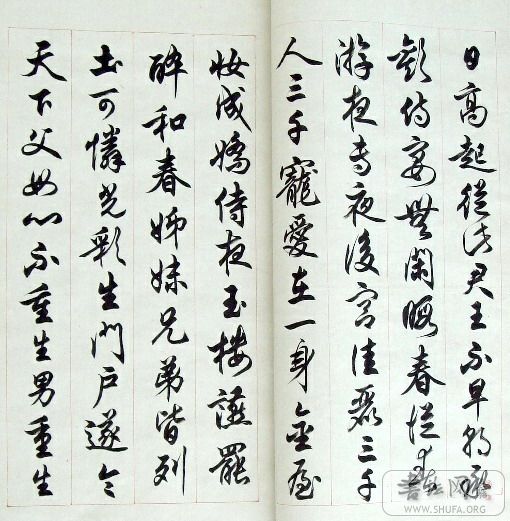 日高起從此君王不早朝承
歡侍宴無閑暇春從春
游夜專夜後宮佳麗三千
人三千寵愛在一身金屋
妝成嬌侍夜玉樓讌罷
醉和春姊妹兄弟皆列
土可憐光彩生門戶遂令
天下父母心不重生男重生
WWW.SHUFA.ORG